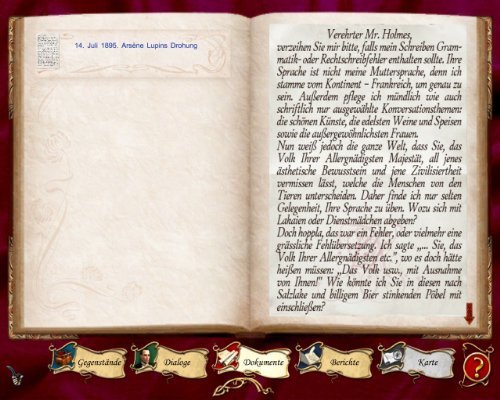 14. Juli 1895. Arsène Lupins Drohung
Verehrter Mr. Holmes,
verzeihen Sie mir bitte, falls mein Schreiben Gram-
matik- oder Rechtschreibfehler enthalten sollte. Ihre
Sprache ist nicht meine Muttersprache, denn ich
stamme vom Kontinent – Frankreich, um genau zu
sein. Außerdem pflege ich mündlich wie auch
schriftlich nur ausgewählte Konversationsthemen:
die schönen Künste, die edelsten Weine und Speisen
sowie die außergewöhnlichsten Frauen.
Nun weiß jedoch die ganze Welt, dass Sie, das
Volk Ihrer Allergnädigsten Majestät, all jenes
ästhetische Bewusstsein und jene Zivilisiertheit
vermissen lässt, welche die Menschen von den
Tieren unterscheiden. Daher finde ich nur selten
Gelegenheit, Ihre Sprache zu üben. Wozu sich mit
Lakaien oder Dienstmädchen abgeben?
Doch hoppla, das war ein Fehler, oder vielmehr eine
grässliche Fehlübersetzung. Ich sagte „... Sie, das
Volk Ihrer Allergnädigsten etc.", wo es doch hätte
heißen müssen: „Das Volk usw., mit Ausnahme
von Ihnen!" Wie könnte ich Sie in diesen nach
Salzlake und billigem Bier stinkenden Pöbel mit
einschließen?
Gegenstände
Dialoge
Dokumente
Berichte
Karte
?